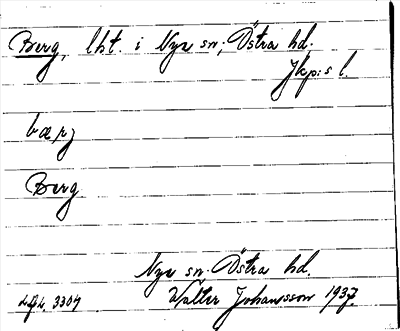 Berg, lht. i Nye sn; Östra hd.
Jkp:s l.
bærj
Berg
Nye sn. Östra hd.
Walter Johansson 1937.
3304